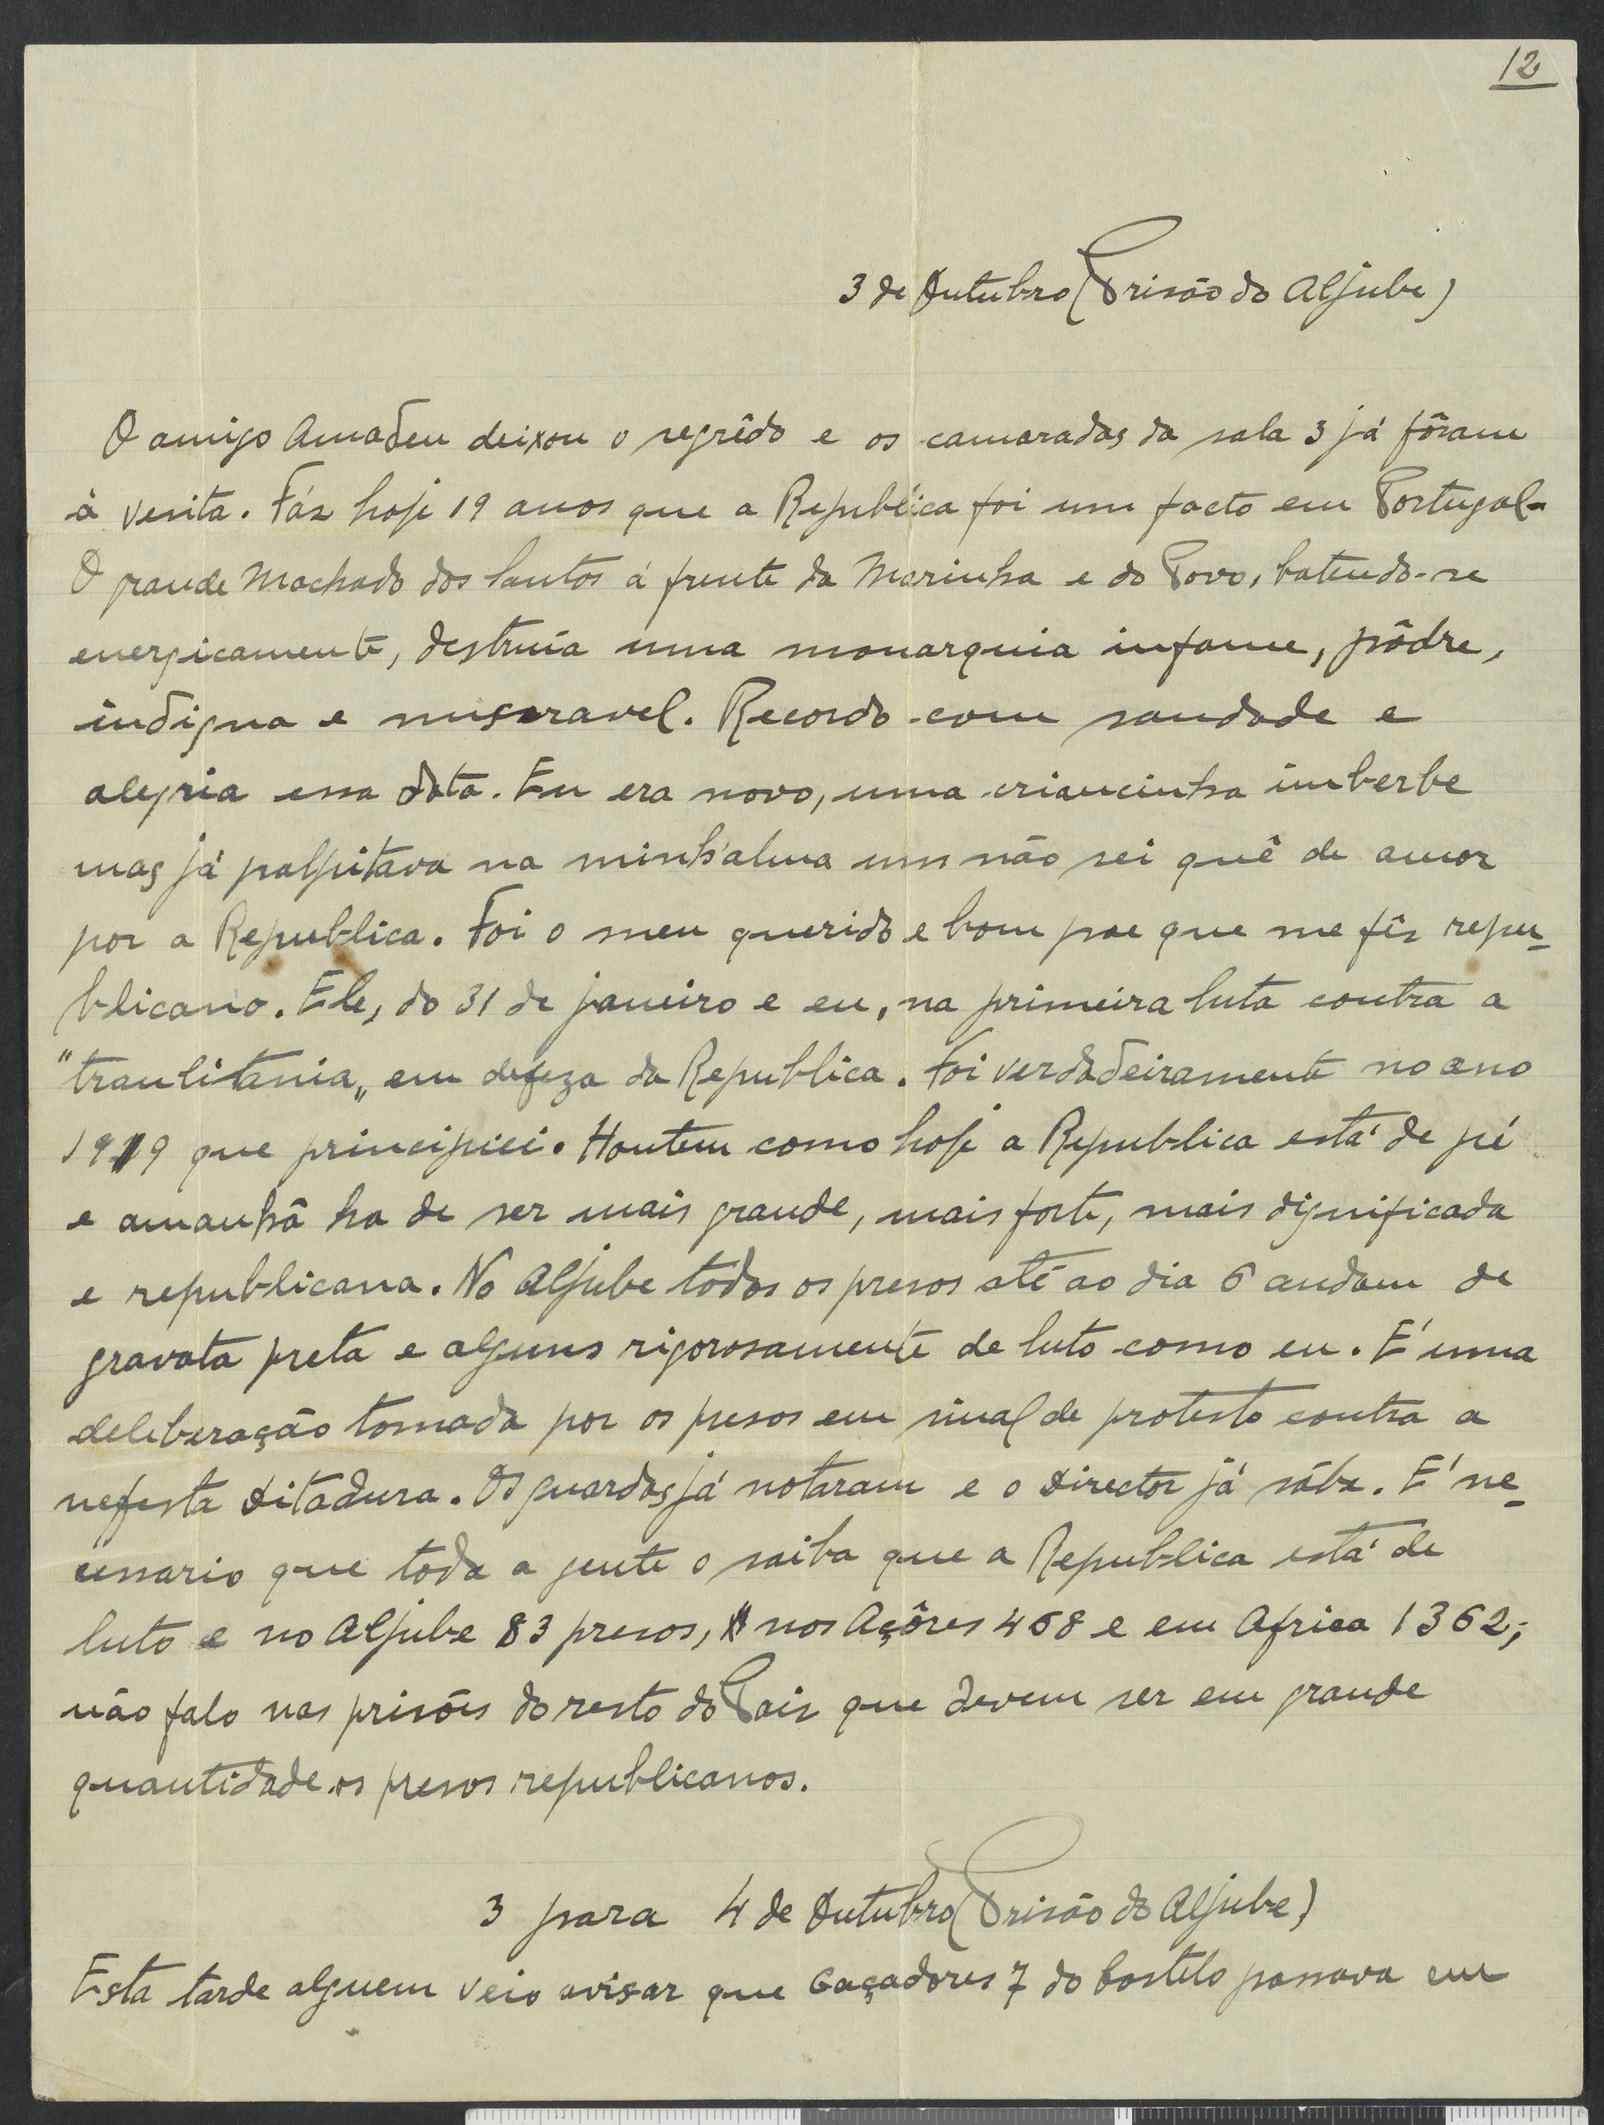 12
3 de Outubro (Prisão do Aljube)
O amigo Amadeu deixou o segrêdo e os camaradas da sala 3 já fôram
á vesita. Fáz hoje 19 anos que a Republica foi um facto em Portugal.
O grande Machado dos Santos á frente da Marinha e do Povo, batendo-se
energicamente, destruia uma monarquia infame, pôdre,
indigna e miseravel. Recordo com saudade e
alegria essa data. Eu era novo, uma criancinha imberbe
mas já palpitava na minh'alma um não sei quê de amor
por a Republica. Foi o meu querido e bom pae que me fês repu-
blicano. Ele, do 31 de janeiro e eu, na primeira luta contra a
"traulitania„ em defeza da Republica. Foi verdadeiramente no ano
1919 que principiei. Hontem como hoje a Republica está de pé
e amanhã ha de ser mais grande, mais forte, mais dignificada
e republicana. No Aljube todos os presos até ao dia 6 andam de
gravata preta e alguns rigorosamente de luto como eu. E' uma
deliberação tomada por os presos em sinal de protesto contra a
nefasta Ditadura. Os guardas já notaram e o Director já sábe. E' ne-
cessario que toda a gente o saiba que a Republica está de
luto e no Aljube 83 presos, nos Açôres 468 e em Africa 1362;
não falo nas prisões do resto do Pais que devem ser em grande
quantidade os presos republicanos.
3 para 4 de Outubro (Prisão do Aljube)
Esta tarde alguem veio avisar que Caçadores 7 do Castelo passava em